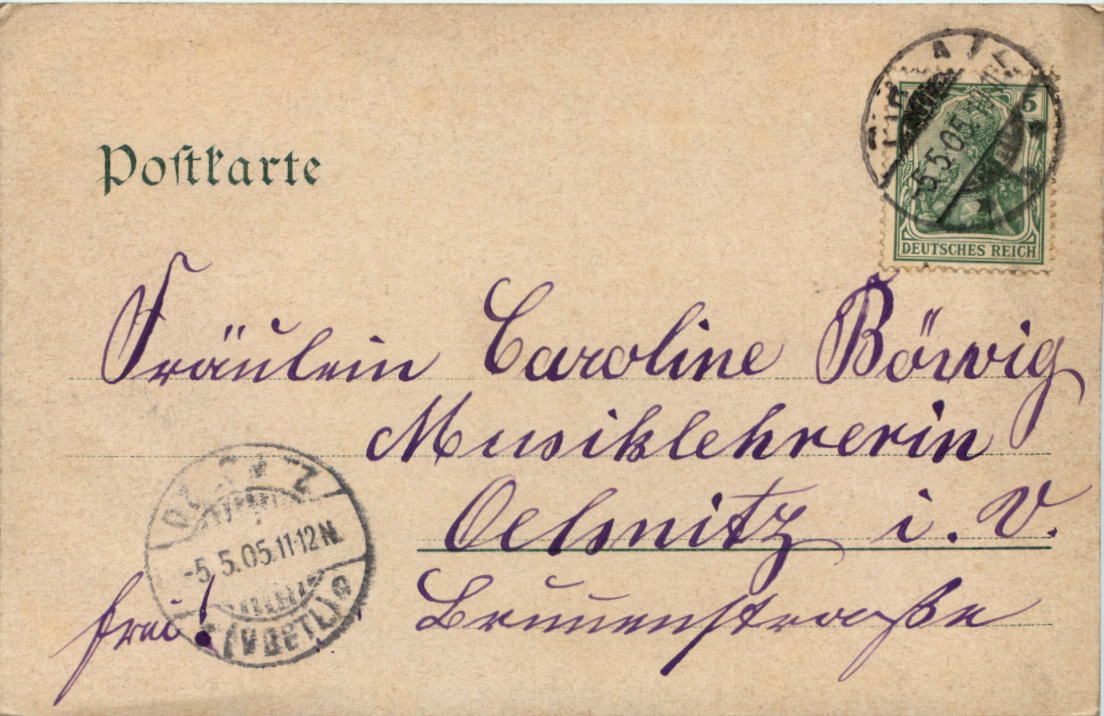 Postkarte
5
5.5.05
DEUTSCHES REICH
Fräulein Caroline Börwig
Musiklehrerin
Oelsnitz i. V.
Brunenstraße
frei!
-5.5.05.11-12N.
(VOGTL)